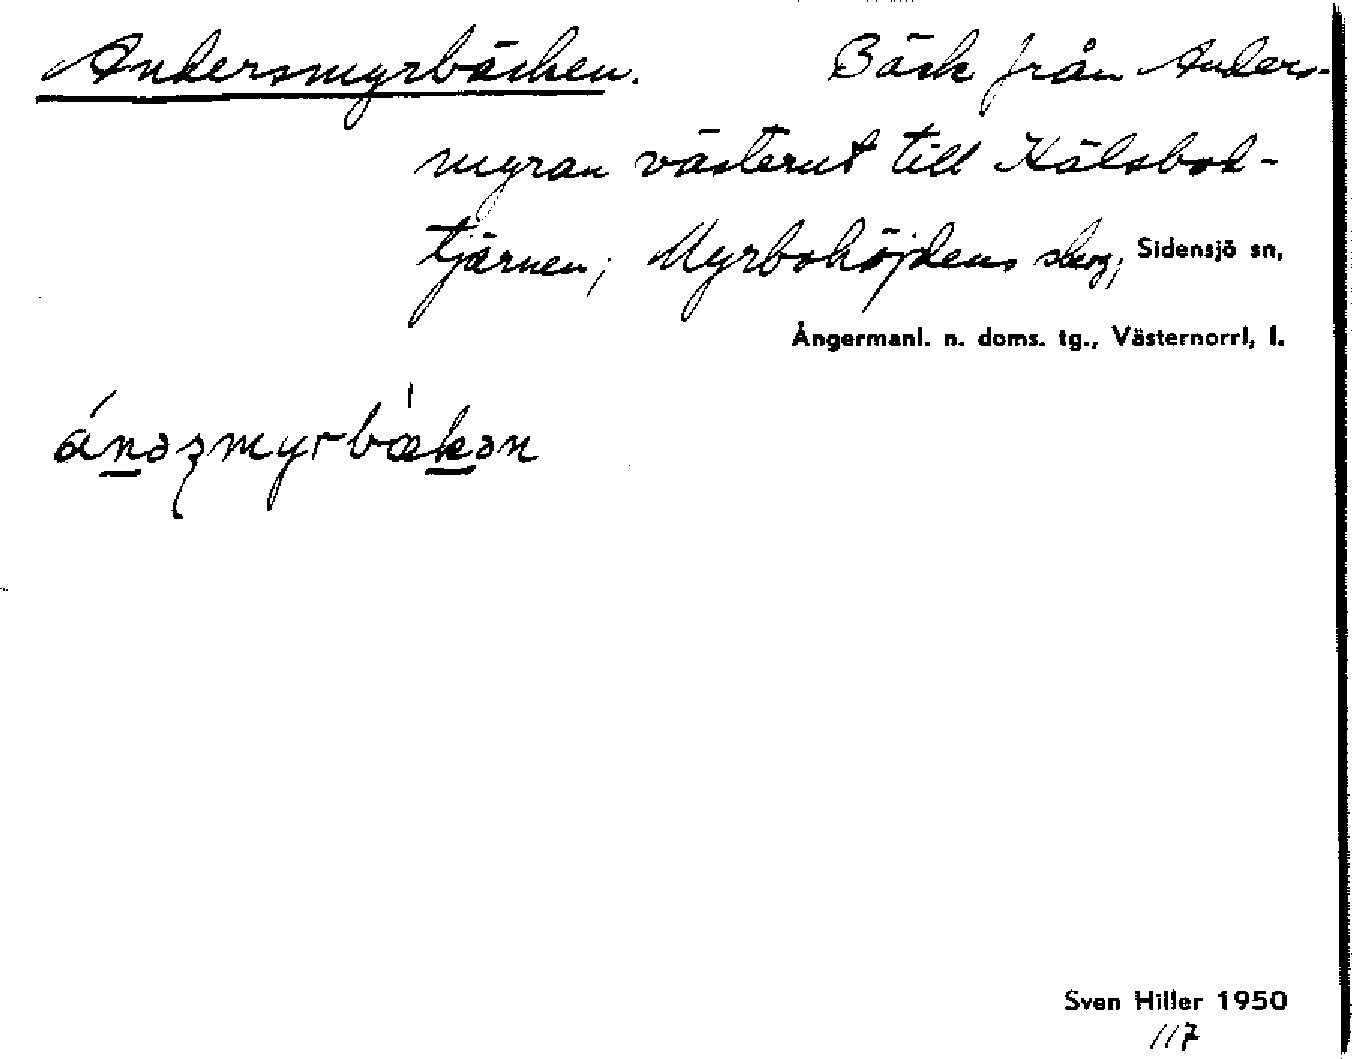 Andersmyrbäcken. Bäck från Anders-
myran västerut till Kälsbod-
tjärnen; Myrbohöjdens skog, Sidensjö sn,
Ångermanl. n. doms. tg., Västernorrl, l.
ánəzmyrbækən
Sven Hiller 1950
117